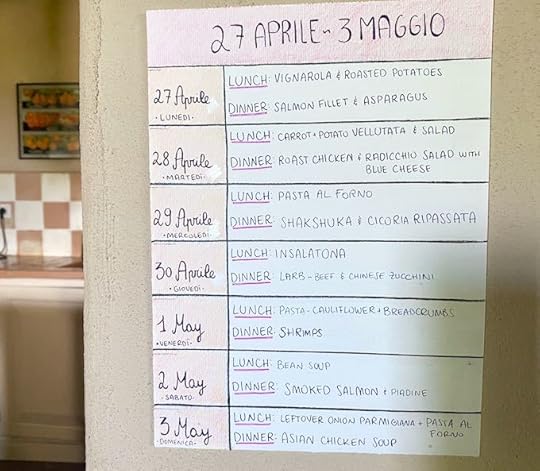 27 APRILE - 3 MAGGIO
27 Aprile
• LUNEDÌ •
LUNCH: VIGNAROLA & ROASTED POTATOES
DINNER: SALMON FILLET & ASPARAGUS
28 Aprile
• MARTEDÌ •
LUNCH: CARROT + POTATO VELLUTATA & SALAD
DINNER: ROAST CHICKEN & RADICCHIO SALAD WITH
BLUE CHEESE
29 Aprile
• MERCOLEDÌ •
LUNCH: PASTA AL FORNO
DINNER: SHAKSHUKA & CICORIA RIPASSATA
30 Aprile
• GIOVEDÌ •
LUNCH: INSALATONA
DINNER: LARB - BEEF & CHINESE ZUCCHINI
1 May
• VENERDÌ •
LUNCH: PASTA - CAULIFLOWER + BREADCRUMBS
DINNER: SHRIMPS
2 May
• SABATO •
LUNCH: BEAN SOUP
DINNER: SMOKED SALMON & PIADINE
3 May
• DOMENICA •
LUNCH: LEFTOVER ONION PARMIGIANA + PASTA AL
FORNO
DINNER: ASIAN CHICKEN SOUP